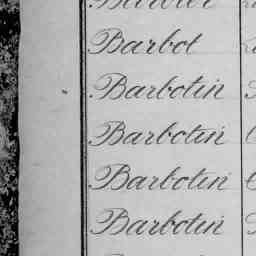 Barbot
Barbotin
Barbotin
Barbotin
Barbotin